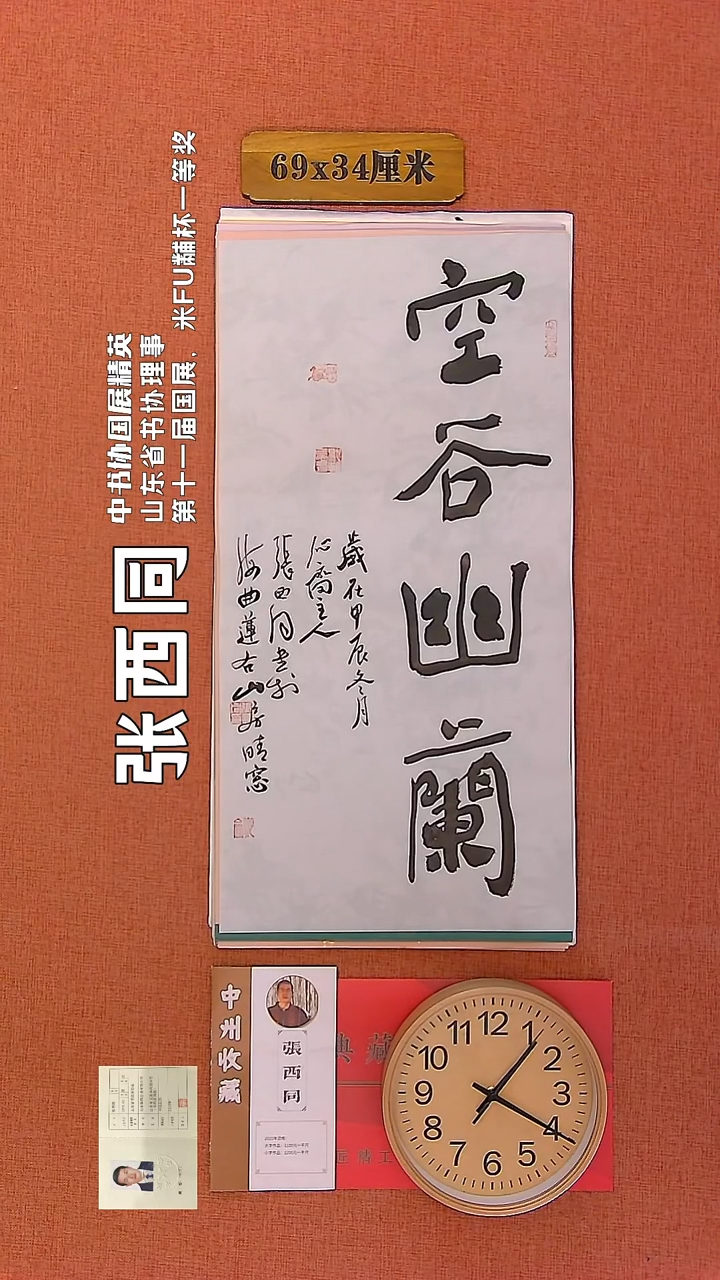 69x34厘米
空谷幽蘭
歲在甲辰冬月
沁齋主人
張西同書於
海曲蓮右山房晴窓
张西同
中书协国展精英
山东省书协理事
第十一届国展，米FU黼杯一等奖
典藏
中主收藏
張西同
12
1
2
3
4
5
6
7
8
9
10
11